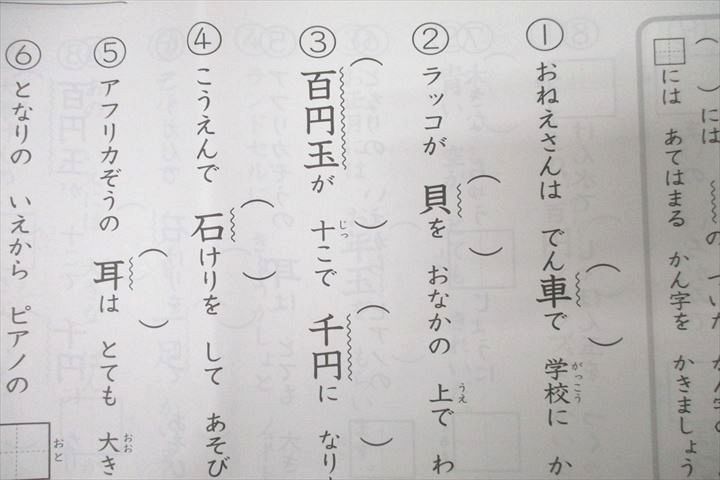 ( )には 〰〰の ついた かん字の
□には あてはまる かん字を かきましょう
① おねえさんは でん車で 学校に か
がっこう
② ラッコが 貝を おなかの 上で わ
うえ
③ 百円玉が 十こで 千円に なり
じっ
④ こうえんで 石けりを して あそび
⑤ アフリカぞうの 耳は とても 大き
おお
⑥ となりの いえから ピアノの
おと